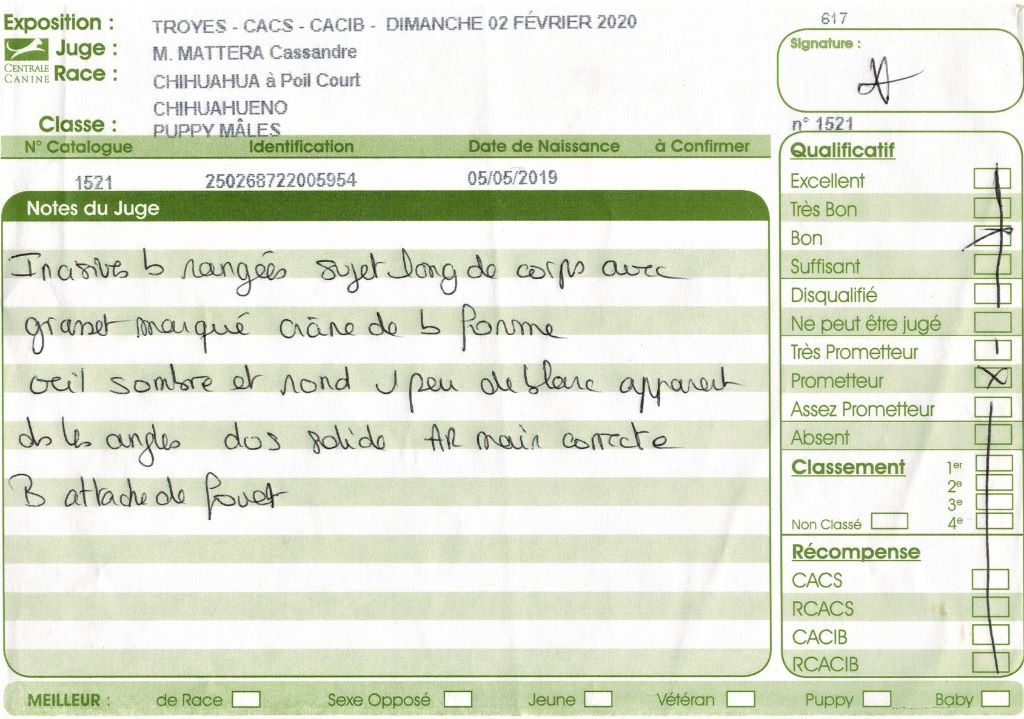 Exposition : TROYES - CACS - CACIB - DIMANCHE 02 FÉVRIER 2020
617
CENTRALE CANINE
Juge : M. MATTERA Cassandre
Race : CHIHUAHUA à Poil Court
CHIHUAHUENO
Classe : PUPPY MÂLES
Signature :
n° 1521
N° Catalogue Identification Date de Naissance à Confirmer
1521 250268722005954 05/05/2019
Notes du Juge
Incisives b rangées sujet long de corps avec
grasset marqué crâne de b forme
oeil sombre et rond 1 peu de blanc apparent
ds les angles dos solide AR main correcte
B attache de fouet
Qualificatif
Excellent
Très Bon
Bon
Suffisant
Disqualifié
Ne peut être jugé
Très Prometteur
Prometteur
Assez Prometteur
Absent
Classement 1er
2e
3e
Non Classé 4e
Récompense
CACS
RCACS
CACIB
RCACIB
MEILLEUR : de Race Sexe Opposé Jeune Vétéran Puppy Baby